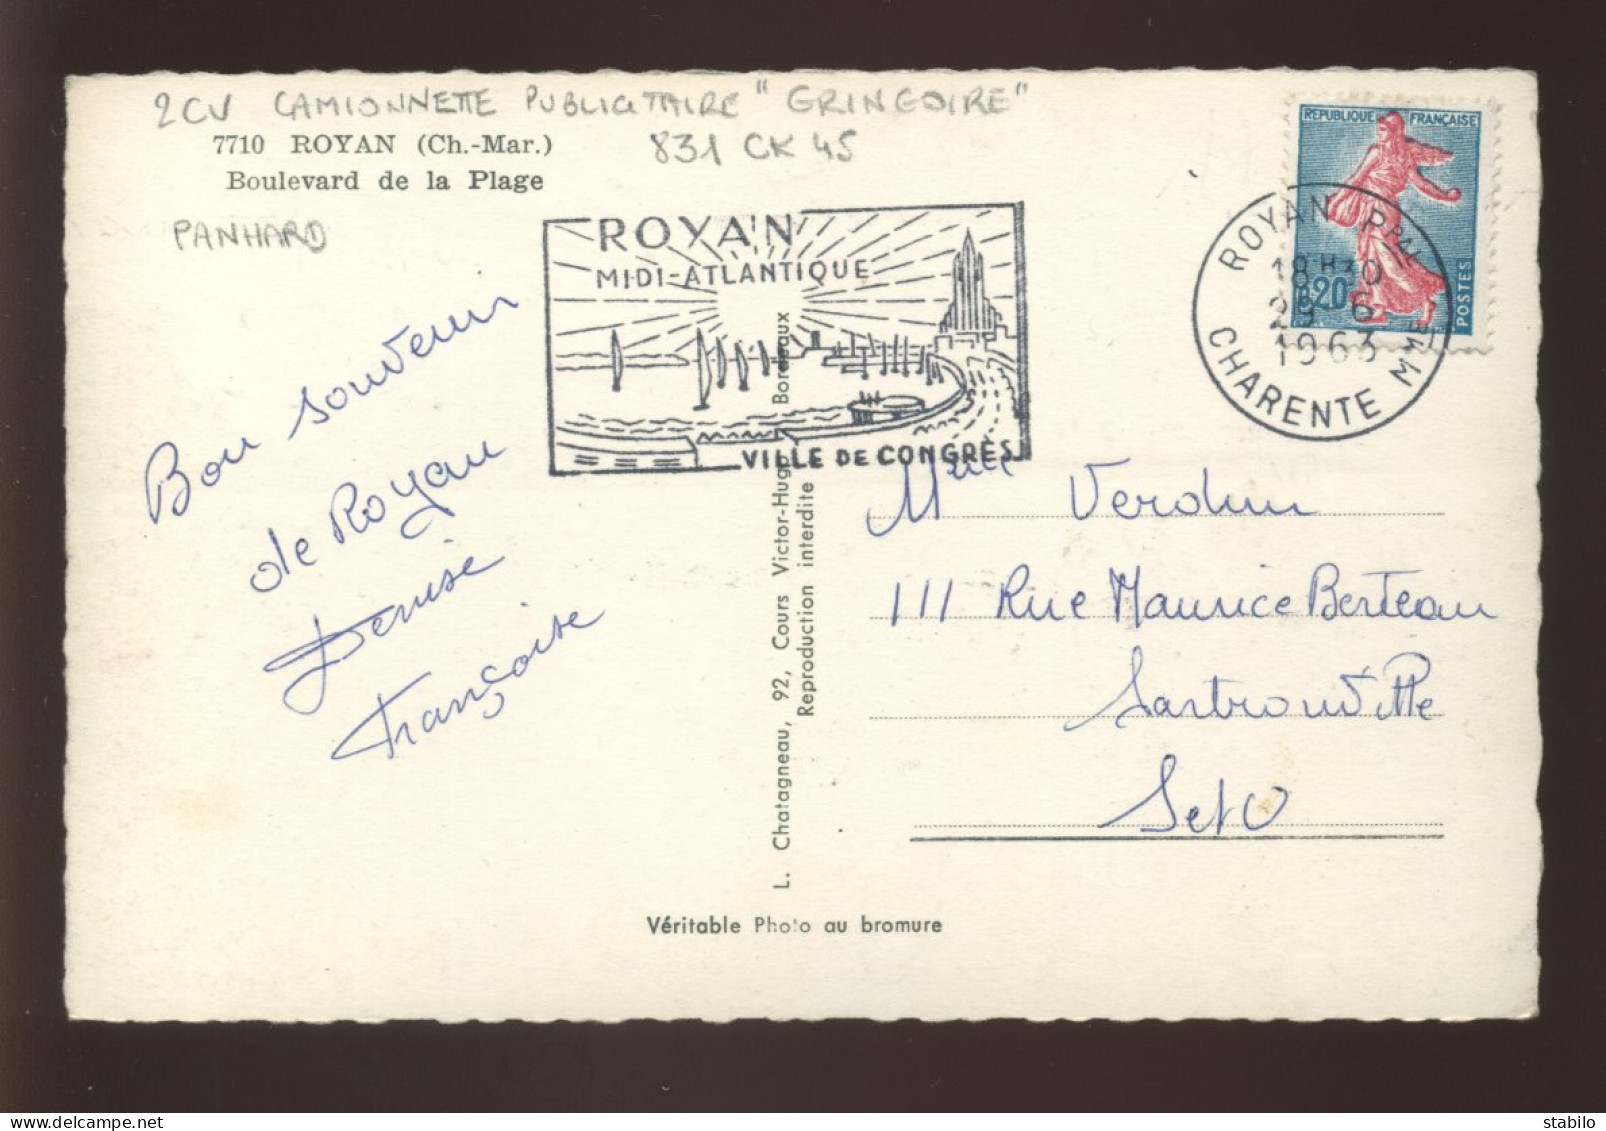 2CV CAMIONNETTE PUBLICITAIRE "GRINGOIRE"
831 CK 45
7710 ROYAN (Ch.-Mar.)
Boulevard de la Plage
PANHARD
REPUBLIQUE FRANÇAISE
0,20
POSTES
ROYAN PPAL
18H30
29-6
1963
CHARENTE MME
ROYAN
MIDI-ATLANTIQUE
VILLE DE CONGRÈS
Bon souvenir
de Royan
Denise
Françoise
L. Chatagneau, 92, Cours Victor-Hugo Bordeaux
Reproduction interdite
Mme Verdun
111 Rue Maurice Berteau
Sartrouville
S et O
Véritable Photo au bromure
stabilo
www.delcampe.net